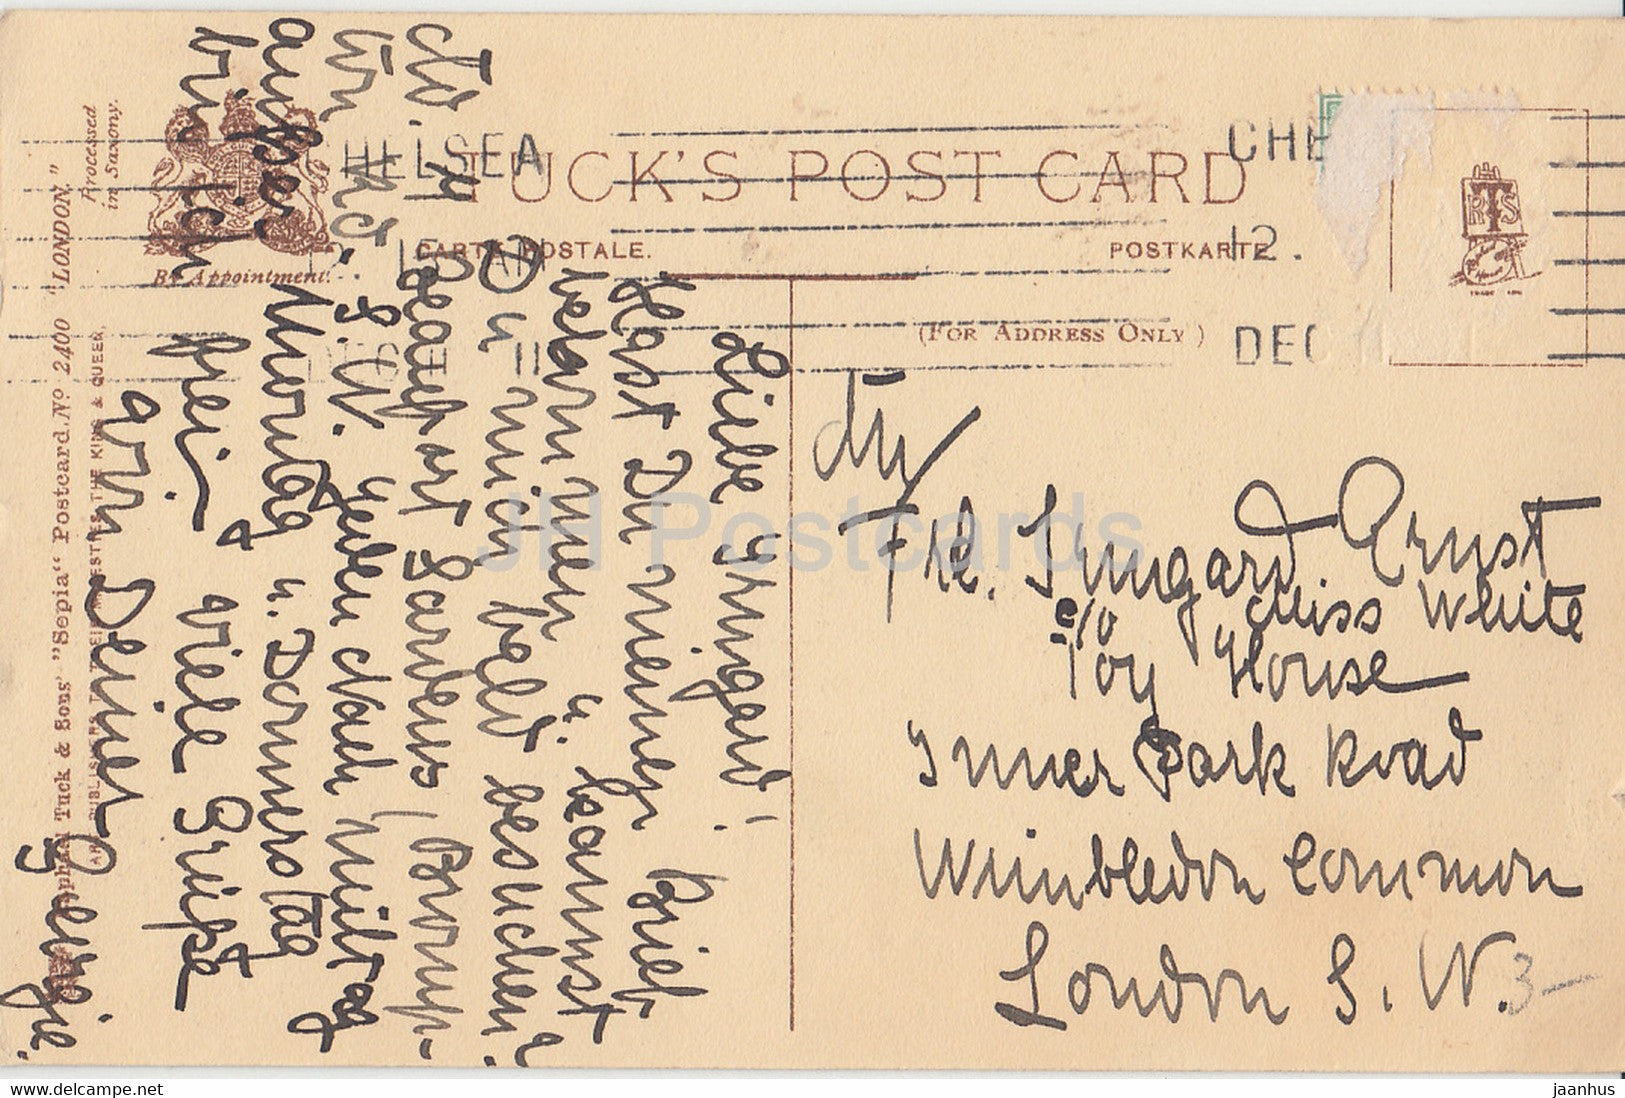 TUCK'S POST CARD
CARTE POSTALE.
POSTKARTE.
(FOR ADDRESS ONLY)
By Appointment.
Processed
in Saxony.
Raphael Tuck & Sons' "Sepia" Postcard. No 2400 "LONDON."
ART PUBLISHERS TO THEIR MAJESTIES THE KING & QUEEN.
CHELSEA
12.15 AM
DEC 11
CHE
12.
DEC 11
TRADE MARK
Liebe Irmgard!
Hast Du meinen Brief
bekommen u. kannst
Du mich bald besuchen?
Beaufort Gardens, Bromp-
S.W. jeden Nachmittag
Montag u. Donnerstag
frei. Viele Grüße
von Deiner
außer
bin ich
An
Frl. Irmgard Ernst
c/o Miss White
Toy House
Inner Park Road
Wimbledon Common
London S.W.
3-
JH Postcards
www.delcampe.net
jaanhus